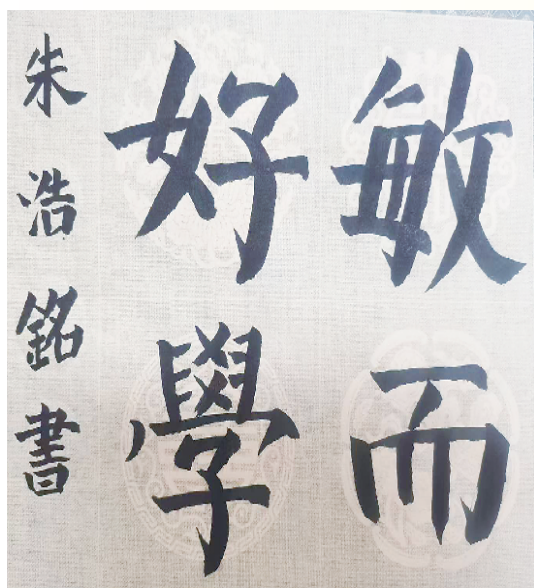 敏而
好學
朱浩銘書